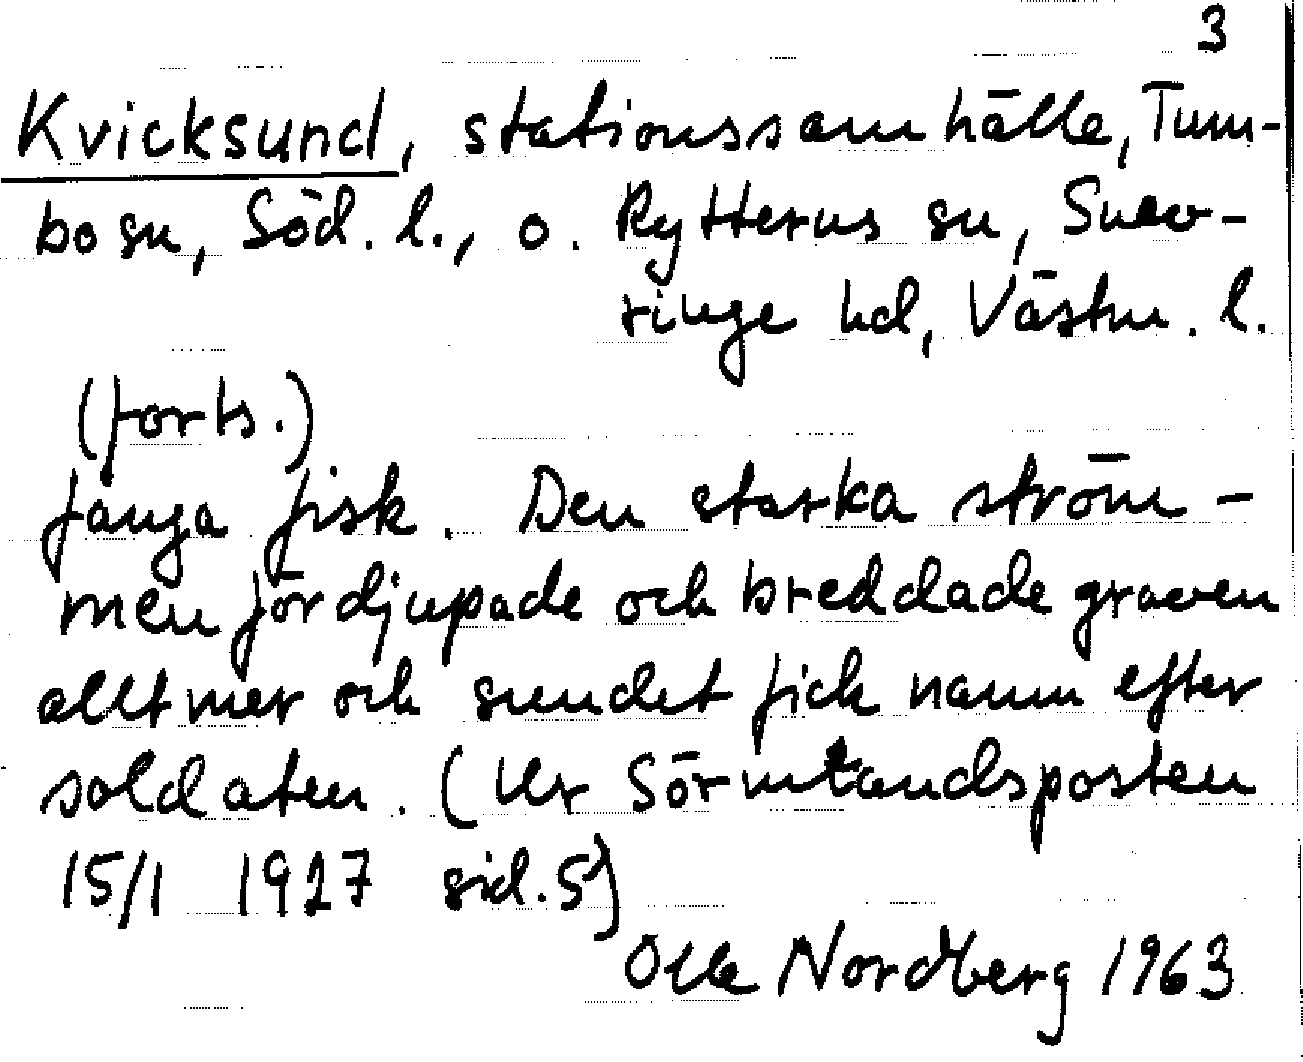 3
Kvicksund, stationssamhälle, Tum-
bo sn, Söd. l., o. Rytterns sn, Snev-
ringe hd, Västm. l.
(forts.)
fånga fisk. Den starka ström-
men fördjupade och breddade graven
allt mer och sundet fick namn efter
soldaten. (Ur Sörmlandsposten
15/1 1927 sid. 5)
Olle Nordberg 1963